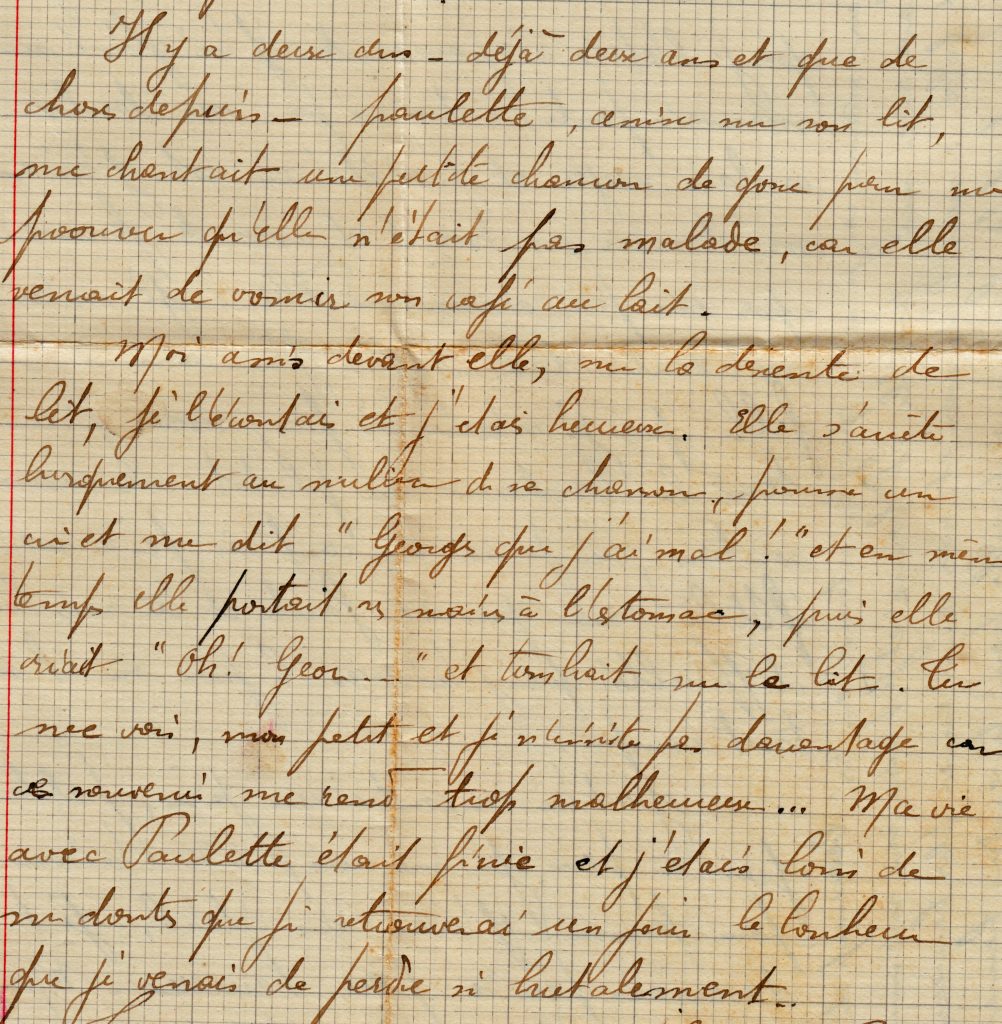 Il y a deux ans - déjà deux ans et que de
choses depuis - paulette, assise sur son lit,
me chantait une petite chanson de gosse pour me
prouver qu'elle n'était pas malade, car elle
venait de vomir son café au lait.
Moi assis devant elle, sur la descente de
lit, je l'écoutais et j'étais heureux. Elle s'arrête
brusquement au milieu de sa chanson, pousse un
cri et me dit "Georges que j'ai mal!" et en même
temps elle portait ses mains à l'estomac, puis elle
criait "Oh! Geor..." et tombait sur le lit. Tu
me vois, mon petit et je n'insiste pas davantage car
ce souvenir me rend trop malheureux... Ma vie
avec Paulette était finie et j'étais loin de
me douter que je retrouverai un jour le bonheur
que je venais de perdre si brutalement..